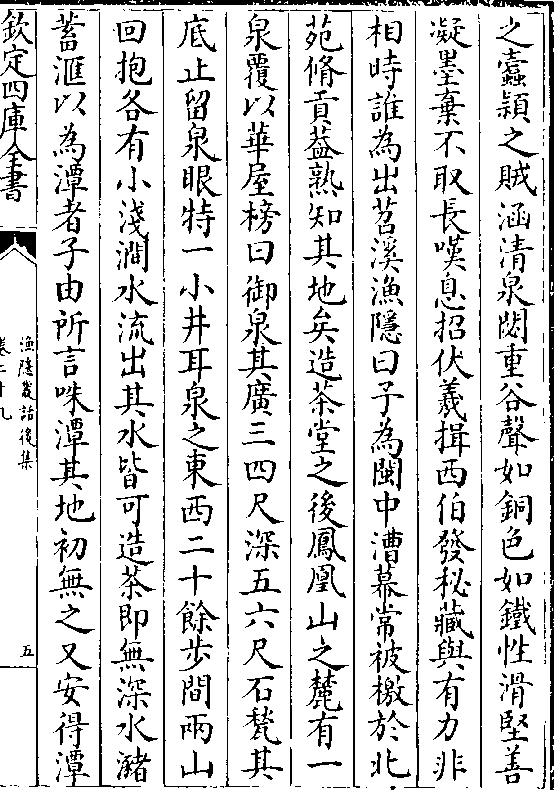 之蠧潁之賊涵清泉閟重谷聲如銅色如鐵性滑堅善
凝墨棄不取長嘆息招伏羲揖西伯發秘藏與有力非
相時誰為出苕溪漁隱曰予為閩中漕幕常被檄於北
苑脩貢葢熟知其地矣造茶堂之後鳳凰山之麓有一
泉覆以華屋榜曰御泉其廣三四尺深五六尺石甃其
底止留泉眼特一小井耳泉之東西二十餘步間兩山
回抱各有小淺澗水流出其水皆可造茶即無深水瀦
蓄滙以為潭者子由所言咮潭其地初無之又安得潭
欽定四庫全書
漁隱叢話後集
卷二十九
五